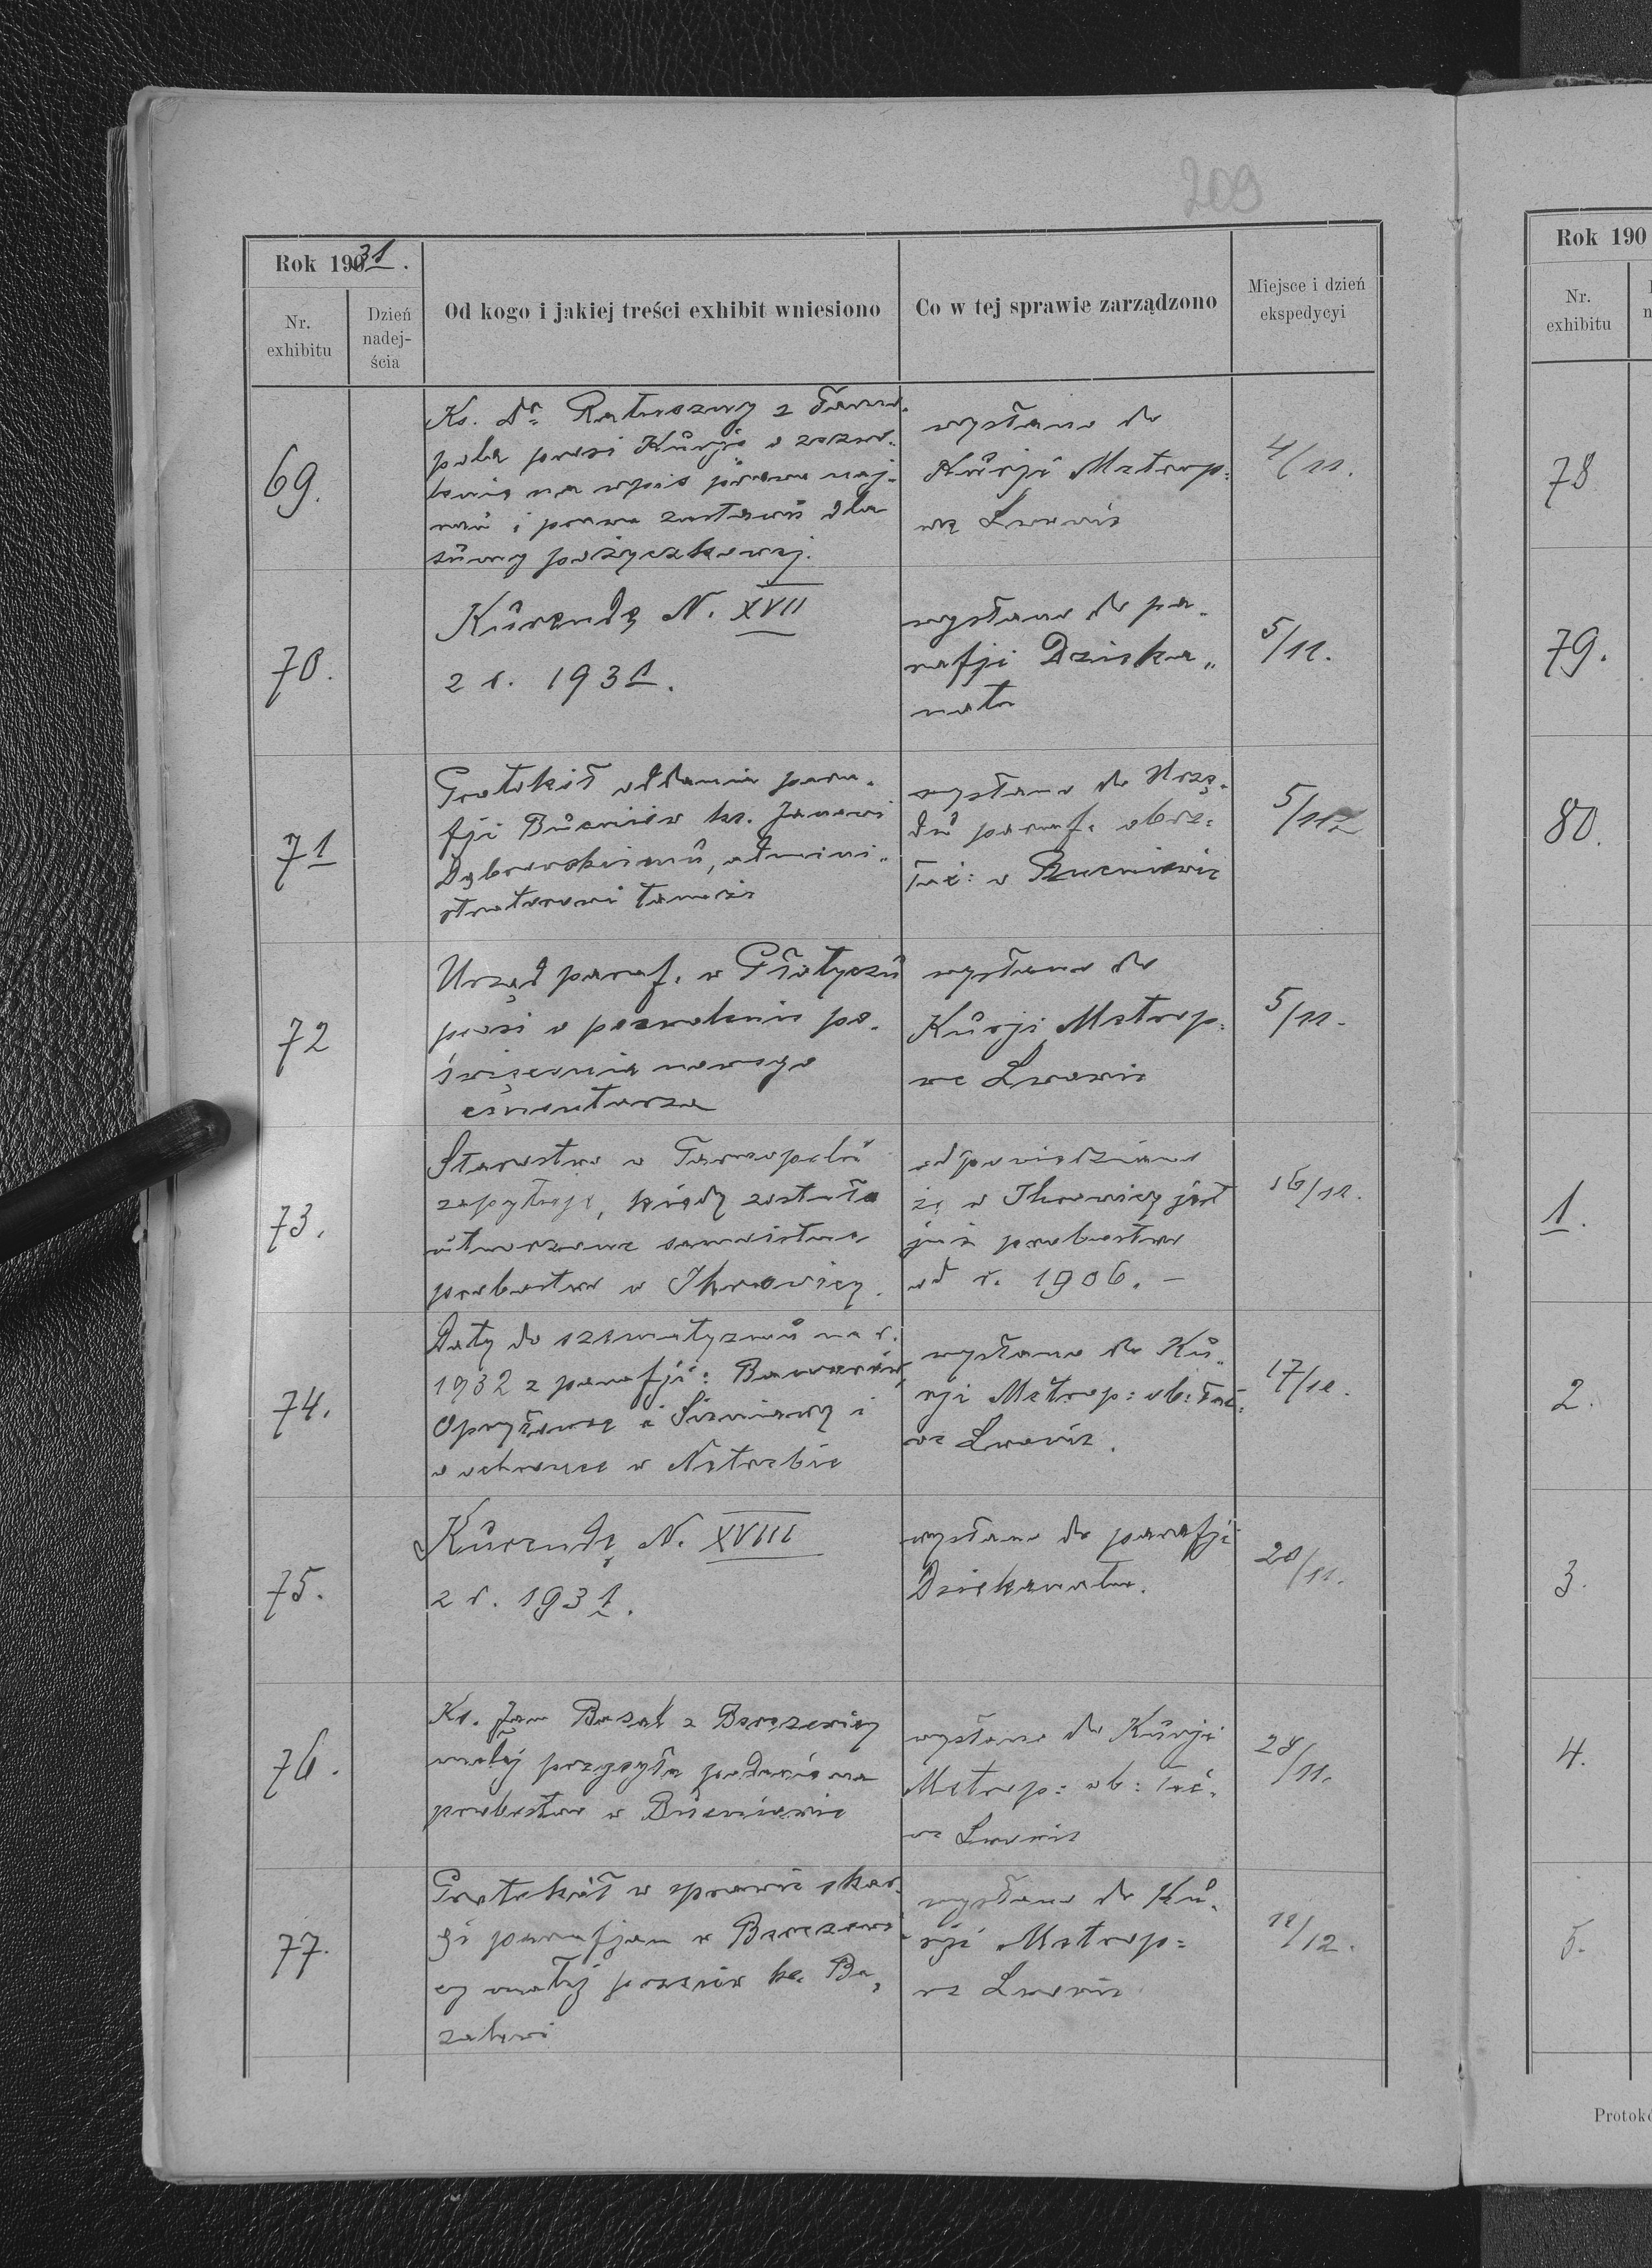 209
Rok 1931.
Nr. exhibitu
Dzień nadejścia
Od kogo i jakiej treści exhibit wniesiono
Co w tej sprawie zarządzono
Miejsce i dzień ekspedycyi
69.
Ks. Dr. Ratuszny z Tarno-
pola prosi Kurję o zezwo-
lenie na wpis prawa naj-
mu i prawa zastawu dla
sumy pożyczkowej.
wysłano do
Kurji Metrop:
we Lwowie
4/11.
70.
Kurendę N. XVII
z r. 1931.
wysłano do pa-
rafji Dzieka„
natu
5/11.
71
Protokół oddania para-
fji Bucniów ks. Janowi
Dąbrowskiemu, admini„
stratorowi tamże
wysłano do Urzę-
du paraf. obrz:
łać: w Bucniowie
5/11
72
Urząd paraf. w Płotyczu
prosi o pozwolenie po-
święcenia nowego
cmentarza
wysłano do
Kurji Metrop:
we Lwowie
5/11.
73.
Starostwo w Tarnopolu
zapytuje, kiedy zostało
utworzone samoistne
probostwo w Ihrowicy.
odpowiedziano
że w Ihrowicy jest
już probostwo
od r. 1906. –
16/11.
74.
Daty do szematyzmu na r.
1932 z parafji: Baworów,
Opryłowce i
o ochronce w Netrebie
wysłano do Ku„
rji Metrop: ob: łać:
we Lwowie.
17/11.
75.
Kurendę N. XVIII
z r. 1931.
wysłano do parafji
Dziekanatu.
20/11.
76.
Ks. Jan Bazal z Berezowicy
małej przysyła podanie na
probostwo w Bucniowie
wysłano do Kurji
Metrop: ob: łać.
we Lwowie
28/11.
77.
Protokół w sprawie skar-
gi parafjan w Berezowi
cy małej przeciw ks. Ba„
zalowi
wysłano do Ku-
rji Metrop:
we Lwowie
/12.
Rok 190
Nr. exhibitu
78
79.
80.
1.
2.
3.
4.
5.
Protok